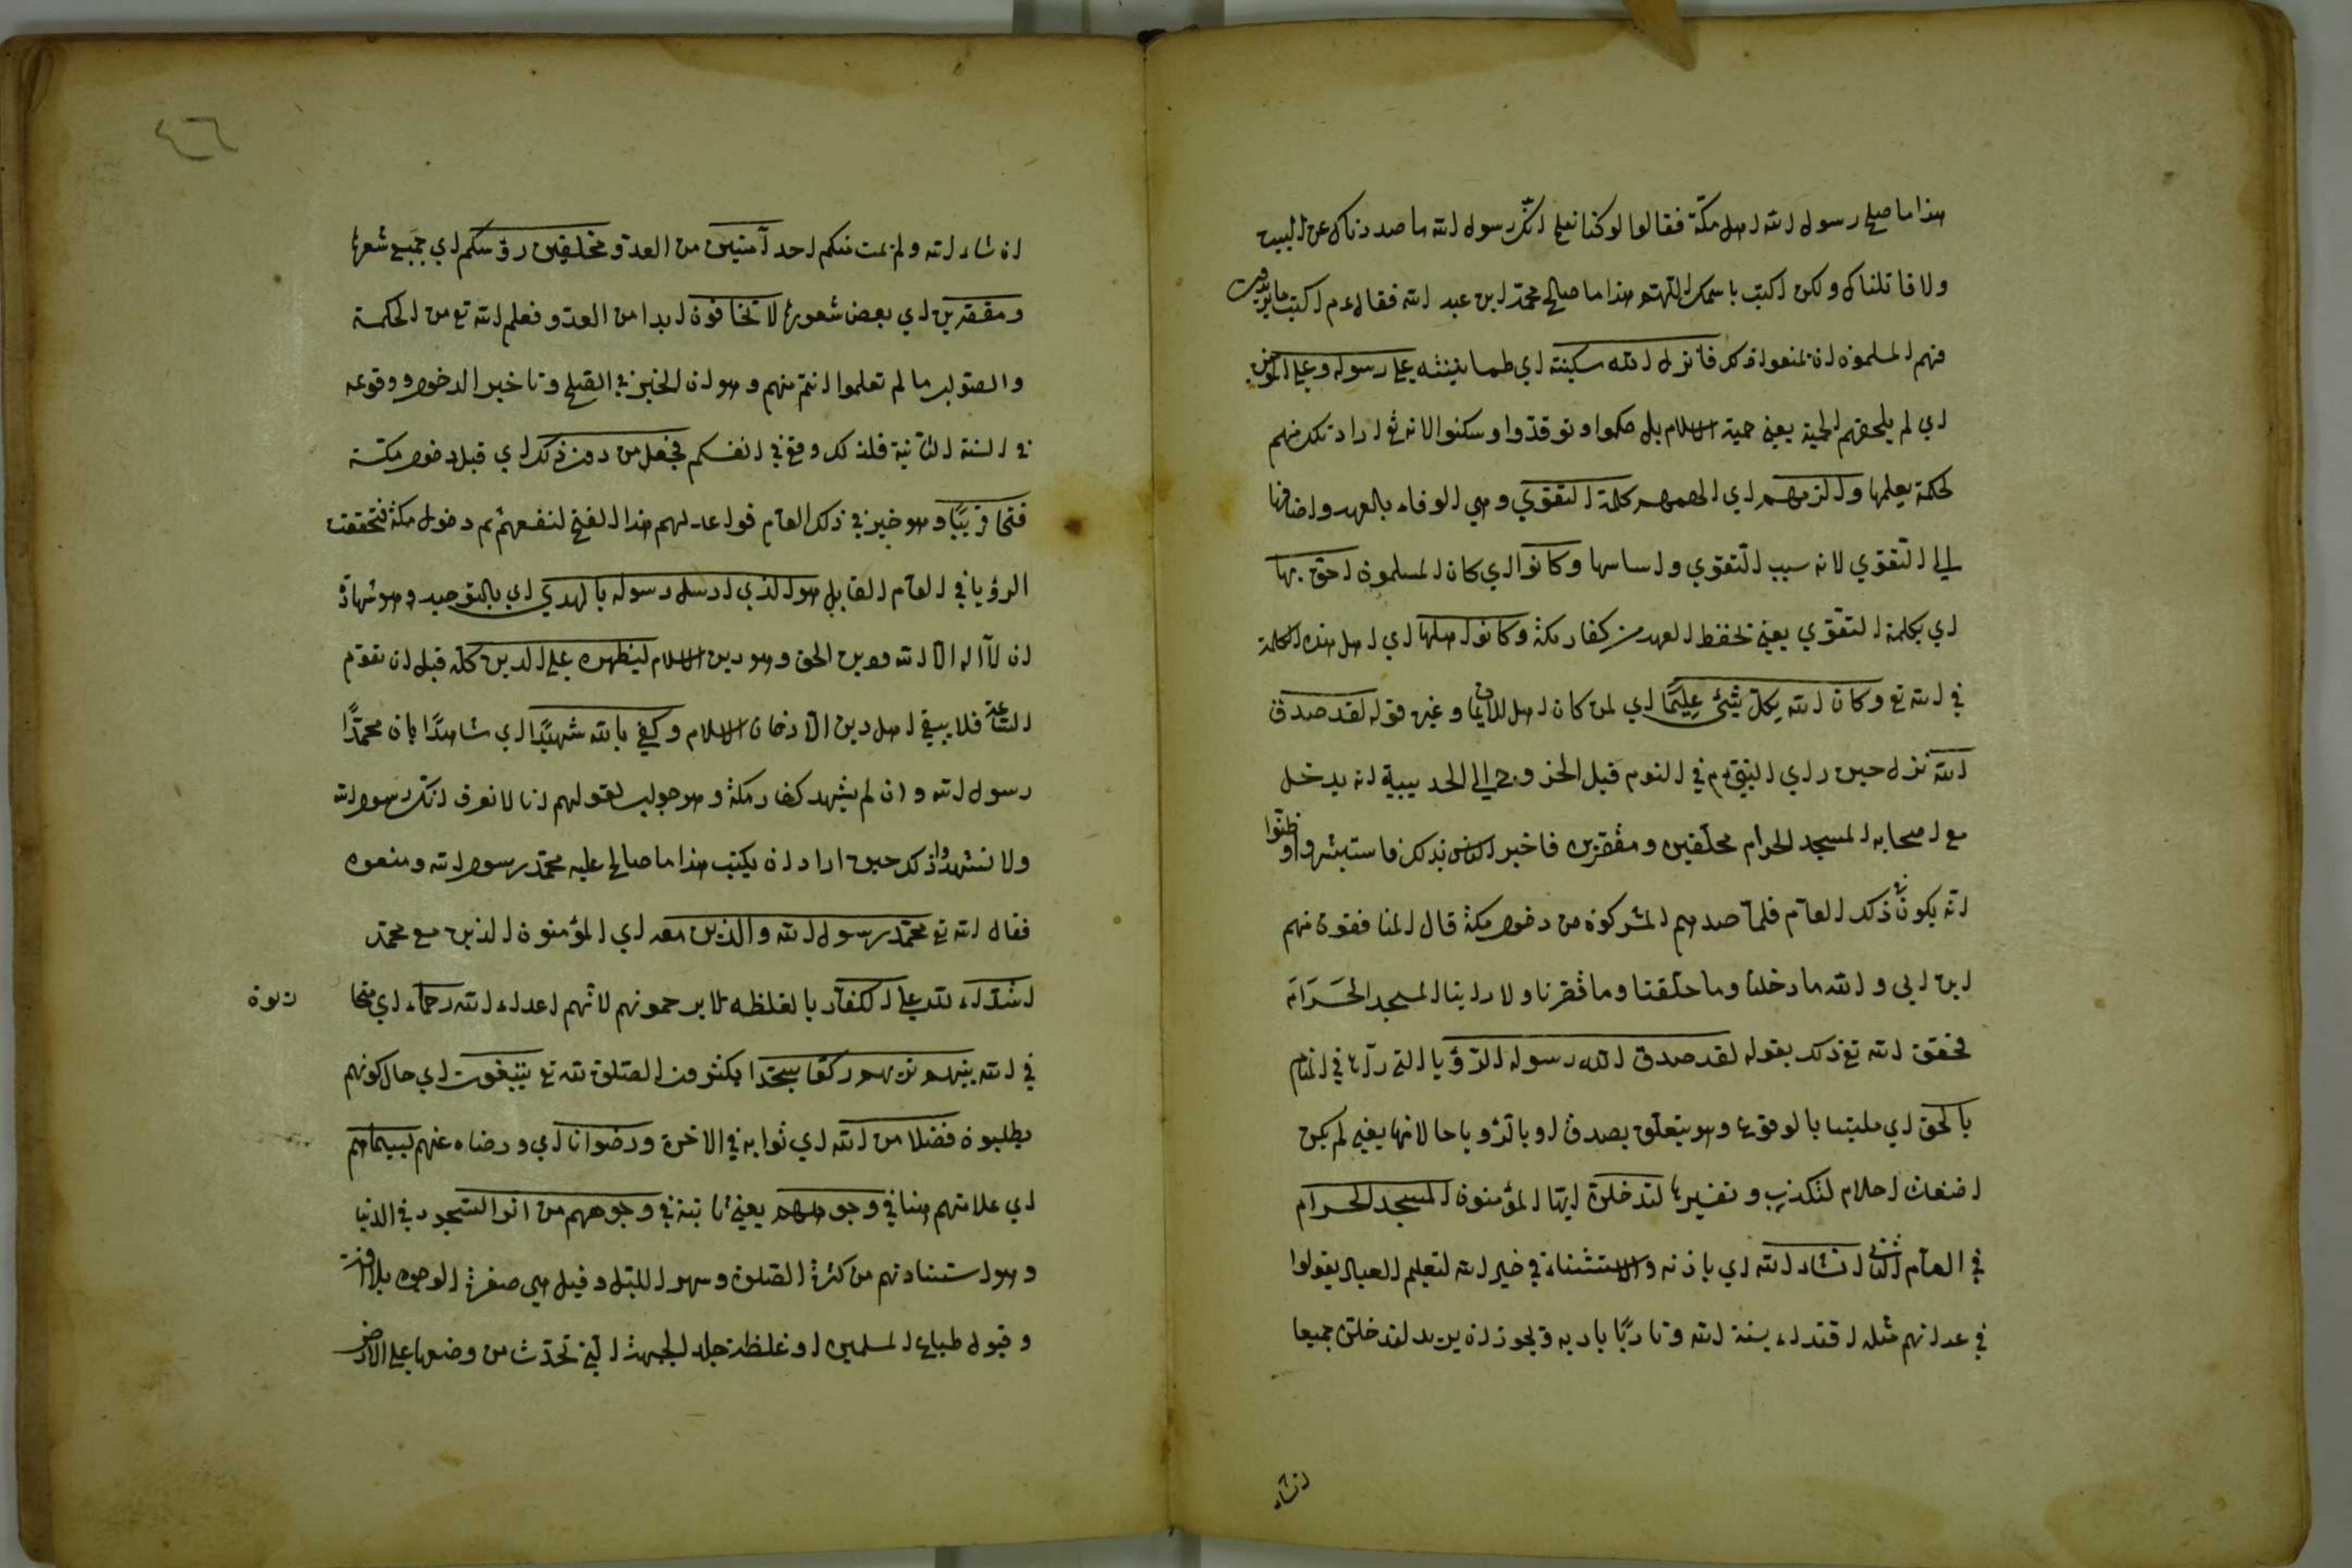 هذا ما صلح رسول الله اهل مكة فقالوا لو كنا نعلم انك رسول الله ما صددناك عن البيت
ولا قاتلناك ولكن اكتب باسمك اللهم هذا ما صالح محمد ابن عبد الله فقال عم اكتب ما يريدون
فهم المسلمون ان يمنعوا ذلك فانزل الله سكينته اي طمانينته على رسوله وعلى المؤمنين
اي لم يلحقهم الحمية يعني حمية الاسلام بل حكموا وتوقدوا وسكنوا لانه تع اراد تلك منهم
لحكمة يعلمها والزمهم اي الهمهم كلمة التقوي وهي الوفاء بالعهد واضافها
الي التقوي لانه سبب التقوي واساسها وكانوا اي كان المسلمون احق بها
اي بكلمة التقوي يعني لحفظ العهد من كفار مكة وكانوا اهلها اي اهل هذه الكلمة
في الله تع وكان الله بكل شيئ عليما اي لمن كان اهل للايمان وغيره قوله لقد صدق
الله نزل حين راي النبي عم في النوم قبل الخروج الي الحديبية انه يدخل
مع اصحابه المسجد الحرام محلقين ومقصرين فاخبر الناس بذلك فاستبشروا وظنوا
انه يكون في ذلك العام فلما صدهم المشركون من دخول مكة قال المنافقون منهم
ابن ابي والله ما دخلنا وما حلقنا وما قصرنا ولا راينا المسجد الحرام
فحقق الله تع ذلك بقوله لقد صدق الله رسوله الرؤيا التي رآها في المنام
بالحق اي ملتبسا بالوقوع وهو يتعلق بصدق او بالرؤيا حالا منها يعني لم يكن
اضغاث احلام لتكذب وتفسيرها لتدخلن ايها المؤمنون المسجد الحرام
في العام الثاني ان شاء الله اي باذنه والاستثناء في خبر الله لتعليم العباد يقولوا
في عداتهم مثله اقتداء بسنة الله وتادبا بادبه ويجوز ان يريد لتدخلن جميعا
ان شاء
٤٦
ان شاء الله ولم يمت منكم احد آمنين من العدو محلقين رؤسكم اي جميع شعرها
ومقصرين اي بعض شعورها لا تخافون ابدا من العدو فعلم الله تع من الحكمة
والصواب ما لم تعلموا انتم منهم وهو ان الخير في الصلح وتاخير الدخول ووقوعه
في السنة الثانية فلذلك وقع في انفسكم فجعل من دون ذلك اي قبل دخول مكة
فتحا قريبا وهو خيبر في ذلك العام فواعد لهم هذا الفتح لنفعهم ثم دخول مكة فتحققت
الرؤيا في العام القابل هو الذي ارسل رسوله بالهدي اي بالتوحيد وهو شهادة
ان لا اله الا الله ودين الحق وهو دين الاسلام ليظهره على الدين كله قبل ان تقوم
الساعة فلا يبقي اهل دين الا دخل الاسلام وكفي بالله شهيدا اي شاهدا بان محمدا
رسول الله وان لم يشهد كفار مكة وهو جواب لقولهم انا لا نعرف انك رسول الله
ولا نشهد وذلك حين اراد ان يكتب هذا ما صالح عليه محمد رسول الله ومنعوه
فقال الله تع محمد رسول الله والذين معه اي المؤمنون الذين مع محمد
اشداء على الكفار بالغلظة لا يرحمونهم لانهم اعداء الله رحماء اي
في الله بينهم تريهم ركعا سجدا يكثرون الصلوة لله تع يبتغون اي حال كونهم
يطلبون فضلا من الله اي ثوابه في الاخرة ورضوانا اي ورضاه عنهم بسيماهم
اي علامتهم هنا في وجوههم يعني ثابتة في وجوههم من اثر السجود في الدنيا
وهو استنادتهم من كثرة الصلوة وسهر الليل وقيل هي صفرة الوجوه بلا
وقبول طباع المسلمين او غلظة جلد الجبهة التي تحدث من وضعها على الارض